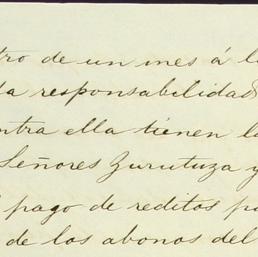 tro de un mes á la
la responsabilidad
ontra ella tienen la
Señores Zurutuza y
pago de reditos po
de los abonos del